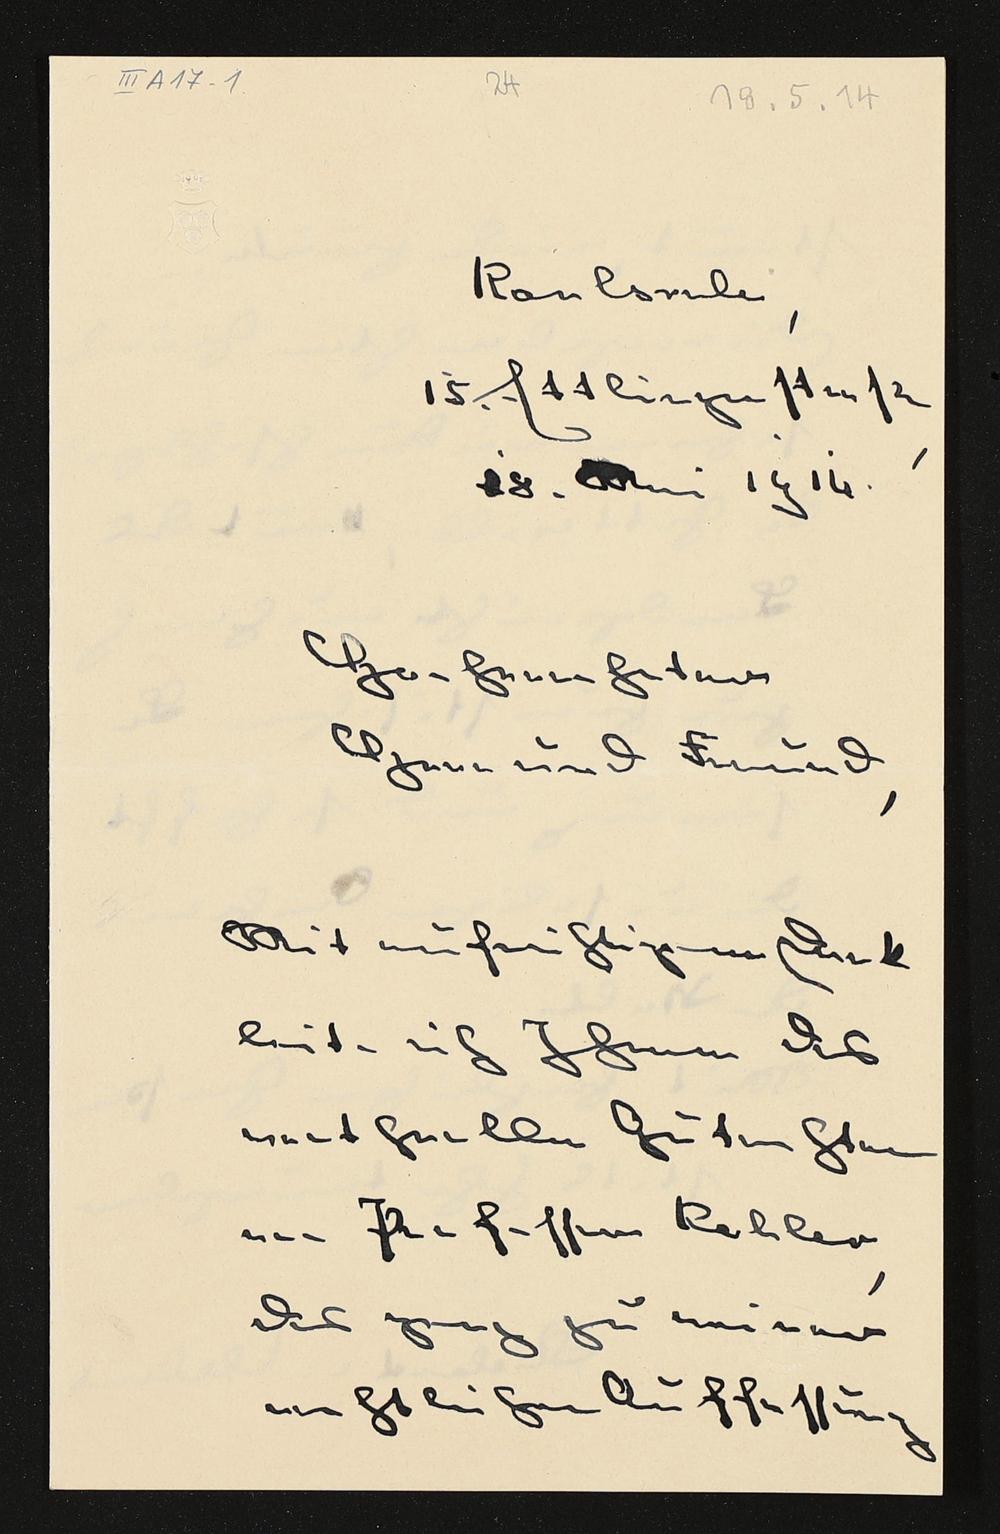 III A 17-1
24
18.5.14
Karlsruhe,
15. Ettlingerstrasse,
18. Mai 1914.
Hochverehrter
Herr und Freund,
Mit aufrichtigem Dank
leite ich Ihnen das
wertvolle Gutachten
von Professor Kohler,
das ganz zu meiner
rechtlichen Auffassung